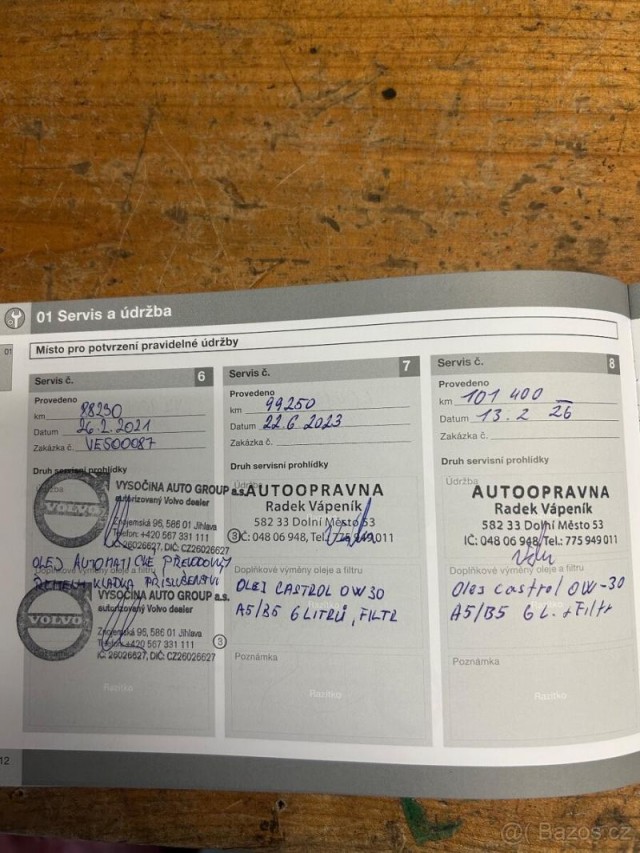 01 Servis a údržba
01
Místo pro potvrzení pravidelné údržby
Servis č. 6
Provedeno
km 88250
Datum 26.2.2021
Zakázka č. VES00087
Druh servisní prohlídky
Údržba
VOLVO
VYSOČINA AUTO GROUP a.s.
autorizovaný Volvo dealer
Znojemská 95, 586 01 Jihlava
Telefon: +420 567 331 111
IČ: 26026627, DIČ: CZ26026627
3
OLEJ AUTOMATICKÉ PŘEVODOVKY
Doplňkové výměny oleje a filtru
ŘEMEN + KLADKA PŘÍSLUŠENSTVÍ
VOLVO
VYSOČINA AUTO GROUP a.s.
autorizovaný Volvo dealer
Znojemská 95, 586 01 Jihlava
Telefon: +420 567 331 111
IČ: 26026627, DIČ: CZ26026627
3
Razítko
Servis č. 7
Provedeno
km 99250
Datum 22.6.2023
Zakázka č.
Druh servisní prohlídky
Údržba
AUTOOPRAVNA
Radek Vápeník
582 33 Dolní Město 53
IČ: 048 06 948, Tel.: 775 949 011
Doplňkové výměny oleje a filtru
OLEJ CASTROL 0W30
A5/B5 6 LITRŮ, FILTR
Poznámka
Razítko
Servis č. 8
Provedeno
km 101 400
Datum 13.2 26
Zakázka č.
Druh servisní prohlídky
Údržba
AUTOOPRAVNA
Radek Vápeník
582 33 Dolní Město 53
IČ: 048 06 948, Tel.: 775 949 011
Doplňkové výměny oleje a filtru
Olej castrol 0W-30
A5/B5 6 L. + Filtr
Poznámka
Razítko
12
@ Bazos.cz